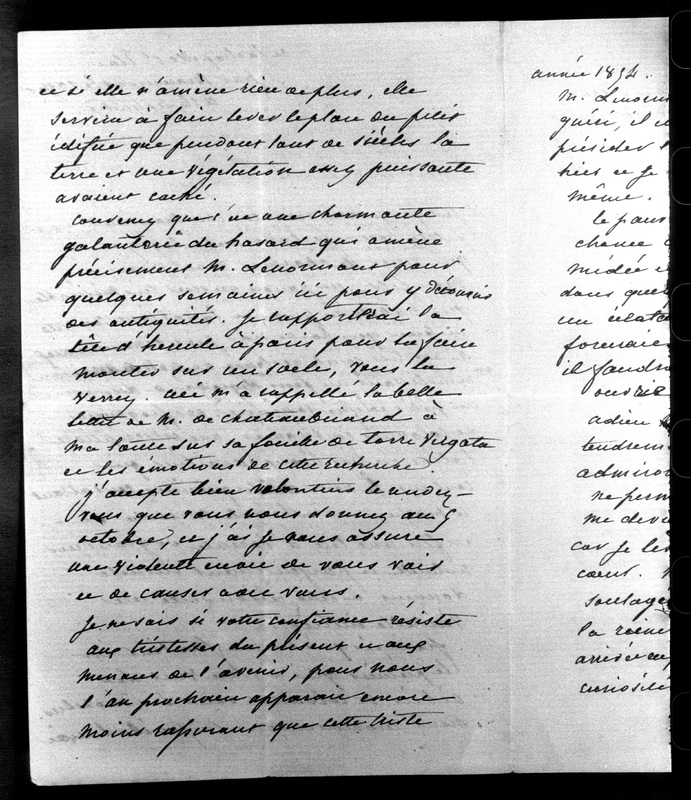 et si elle n'amène rien de plus, elle
servira à faire lever le plan du petit
édifice que pendant tant de siècles la
terre et une végétation assez puissante
avaient caché.
Convenez que c'est une charmante
galanterie du hasard qui amène
précisément M. Lenormant pour
quelques semaines ici pour y découvrir
des antiquités. Je rapporterai la
tête d'hercule à paris pour la faire
monter sur un socle, vous la
verrez. ceci m'a rappellé la belle
lettre de M. de chateaubriand à
ma tante sur sa fouille de torre vergata
et les émotions de cette recherche.
j'accepte bien volontiers le rendez-
vous que vous nous donnez au 5
octobre, et j'ai je vous assure
une violente envie de vous voir
et de causer avec vous.
Je ne sais si votre confiance résiste
aux tristesses du présent et aux
menaces de l'avenir, pour nous
l'an prochain apparait encore
moins rassurant que cette triste
année 1894.
M. Lenorm
guéri, il
présider
hier et je
même.
le pauv
chance
midée
dans quel
un
il faudr
ouvrir
adieu
tendrem
admirat
ne perm
me dev
car je les
cœur.
soulage
la reine
arrivée
curiosité